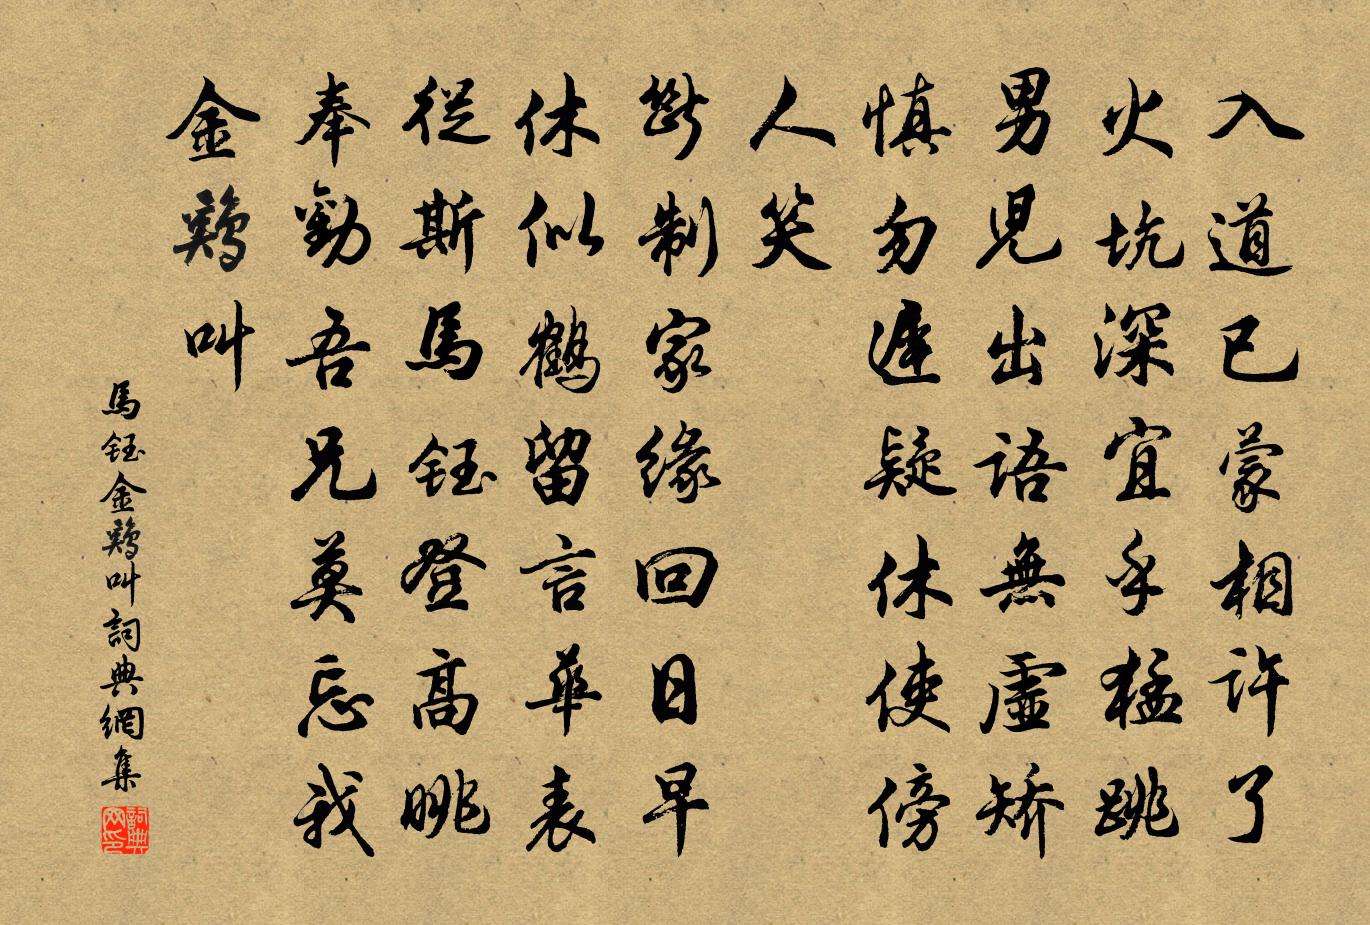 入道已蒙相許了
火坑深宜乎猛跳
男兒出語無虛矫
慎勿遲疑休使傍
人笑
斷制家緣回日早
休似鶴留言華表
從斯馬鈺登高眺
奉勸吾兄莫忘我
金鷄叫
馬鈺金鷄叫詞典網集
詞典网印